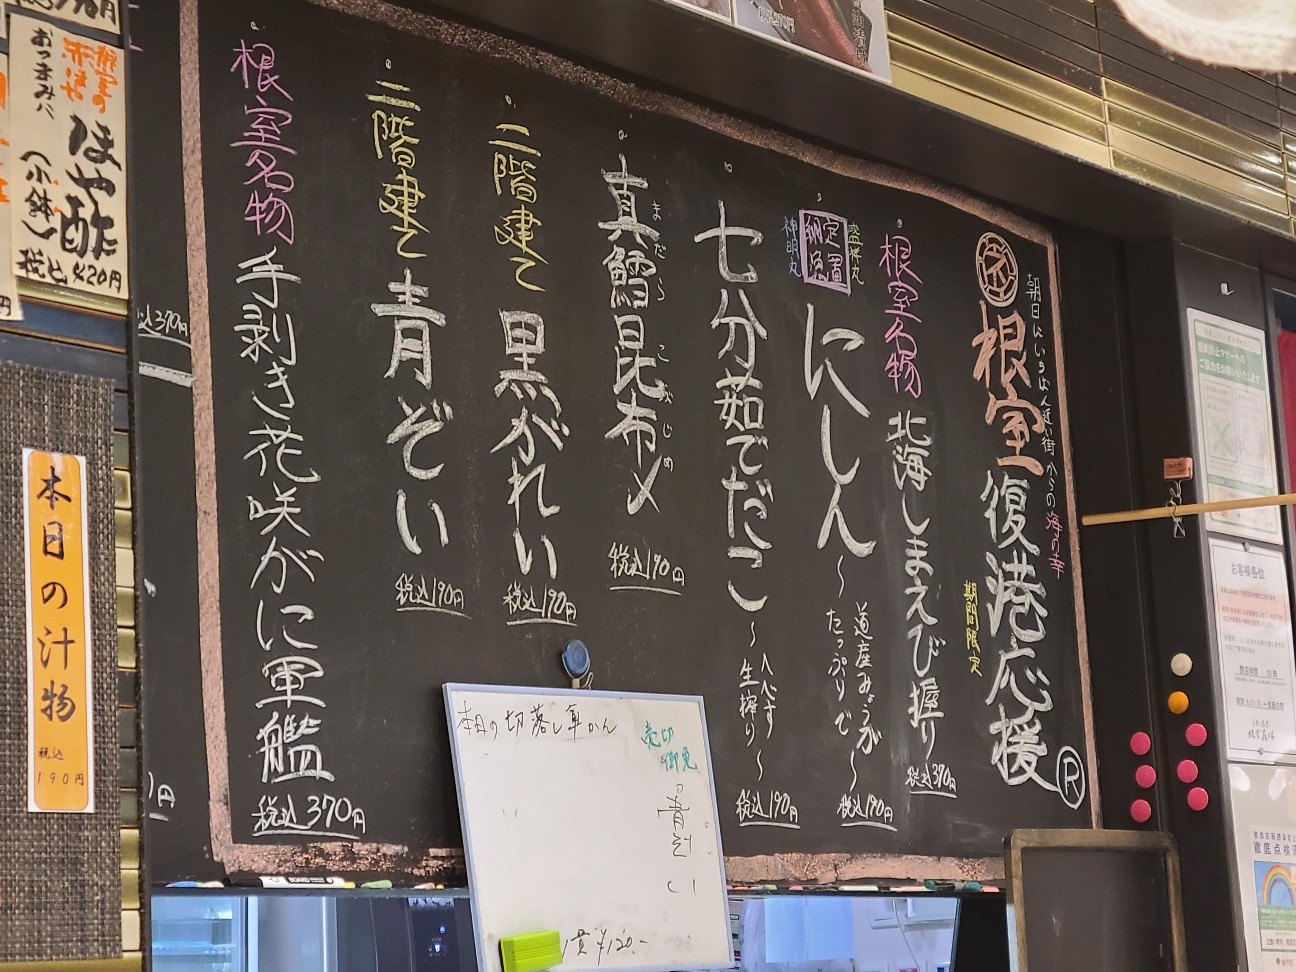 朝日にいちばん近い街からの海の幸
根室復港応援
R
期間限定
根室名物 北海しまえび握り
税込370円
定置
納漁
神明丸
にしん~道産みょうがたっぷりで~
税込190円
七分茹でだこ
~へべす生搾り~
税込190円
真鱈昆布〆
まだら こぶじめ
税込190円
二階建て 黒がれい
税込190円
二階建て 青ぞい
税込190円
根室名物 手剥き花咲がに軍艦
税込370円
込370円
円
本日の切落し軍かん
売切御免
青ぞい
1貫¥120.-
根室の
赤ほや
ほや酢
おつまみに
(小鉢)
税込420円
本日の汁物
税込
190円
お客様各位
ご協力をお願いいたします
徹底点検